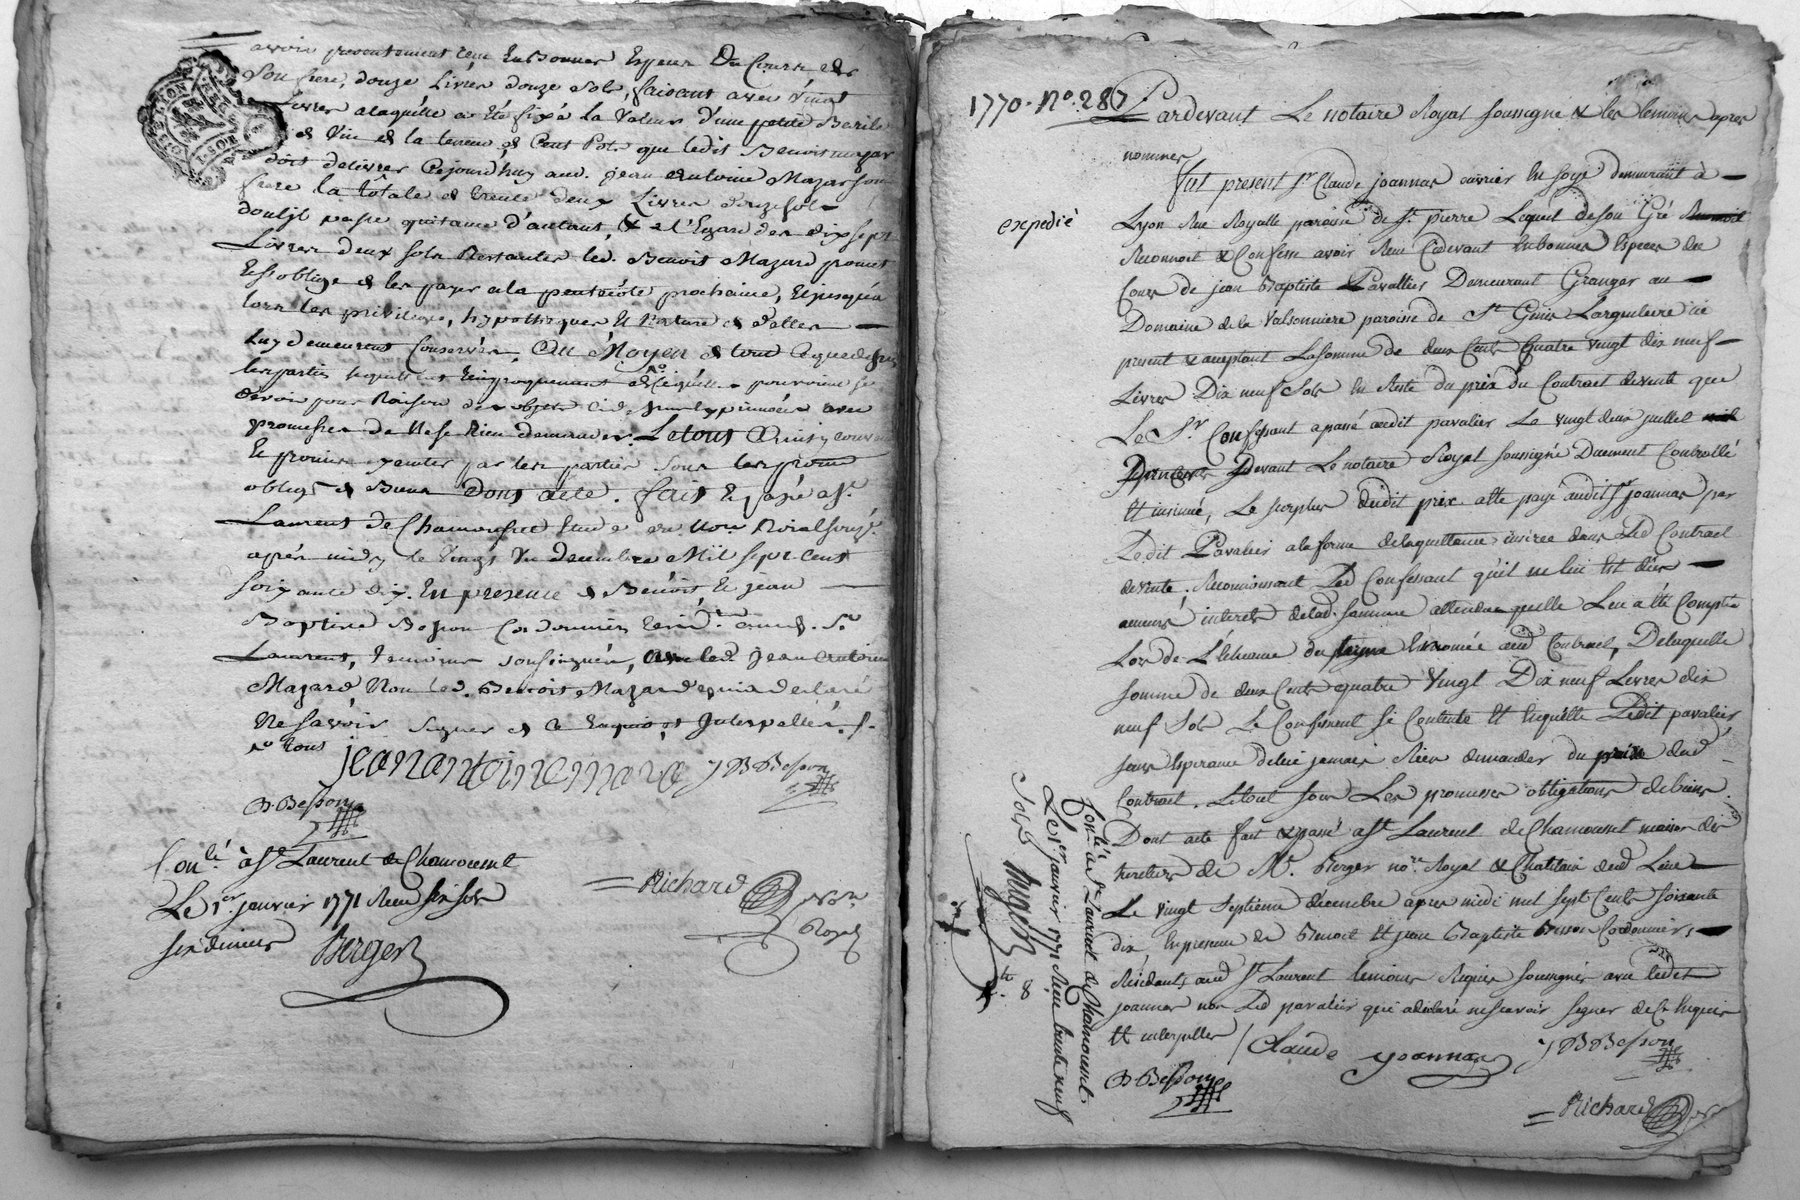 avoir presentement reçu en bonnes especes du cours de
son frere, douze Livres douze sols, faisant avec vingt
Livres a laquelle a été fixé la valeur d'une petite Barile
de vin de la teneur de Cent Pots que ledit Benoit mazar
doit delivrer cejourd'huy aud. jean antoine Mazar son
frere la totale de trente deux Livres douze sols
dont il passe quitance d'autant, & a l'Egard des dix sept
Livres deux sols Restantes led. Benoit Mazard promet
et s'oblige de les payer a la pentecôte prochaine, et jusqu'a
lors les privileges, hypotheques et nature d'elles
luy demeurent Conservés, Au Moyen de tout ce que dessus
les parties se quittent reciproquement de ce qu'elles pouvoient se
devoir pour Raison des objets cid. exprimées avec
promesses de ne se Rien demander. Le tout Ainsy convenu
et promis par les parties sous les prom
oblig. de Biens Dont acte. fait et passé a St.
Laurent de Chamousset Etude du Not. Roial sousg.
aprés midy le vingt un decembre Mil sept cent
soixante dix. En presence de Benoit et jean
Baptiste Besson Cordonniers resid. aud. St.
Laurent, temoins sousignés, avec led. jean antoine
Mazard, Non led. Benoit Mazard qui a declaré
Ne savoir signer de ce Enquis et Interpellés.
jean antoine mazard JB Besson
B Besson
Con.lé à St. Laurent de Chamousset
Le 1er. janvier 1771 Reçu six sols
six deniers Berger
Richard Not.
Royal
1770. No. 287
Pardevant Le notaire Royal soussigné & les temoins apres
nommés
fut present Sr. Claude joannas ouvrier en soye demeurant à
expedié
Lyon Rue Royalle paroisse de St. pierre Lequel de son Gré
Reconnoit & Confesse avoir Reçu Cidevant En bonnes Especes du
Cours de jean Baptiste Pavallier Demeurant Granger au
Domaine de la Valsonniere paroisse de St. Genis Largentiere ici
present & acceptant La somme de deux Cents quatre vingt dix neuf
Livres Dix neuf Sols En Reste du prix du Contract de vente que
Le Sr. Confessant a passé audit pavalier Le vingt deux juillet
Devant Le notaire Royal soussigné Duement Controllé
Et insinué, Le surplus dudit prix a été payé audit Sr joannas par
Ledit Pavalier a la forme de la quittance inserée dans Led Contract
de vente. Reconnoissant Led Confessant qu'il ne lui Est dû
aucuns interets de lad. somme attendu qu'elle Lui a été Comptée
Lors de L'écheance du terme Enoncée aud Contract, De laquelle
somme de deux Cents quatre Vingt Dix neuf Livres dix
neuf Sols Le Confessant se Contente Et En quitte Ledit pavalier
sans Esperance de lui jamais Rien demander du prix dud
Contract. Le tout sous Les promesses obligations de biens
Dont acte fait & passé a St. Laurent de Chamousset maison des
heritiers de Me. Berger no.re Royal & Chatelain dud Lieu
Le vingt septieme décembre apres midi mil sept Cents soixante
dix, En presence de Benoit Et jean Baptiste Besson Cordonniers
Residants aud St. Laurent temoins Requis soussignés avec ledit
joannas non Led pavalier qui a declaré ne scavoir signer de Ce Enquis
Et interpellés
Claude joannas JB Besson
B Besson
Richard
Con.lé à St. Laurent de Chamousset
Le 1er janvier 1771 Reçu trente neuf
sols